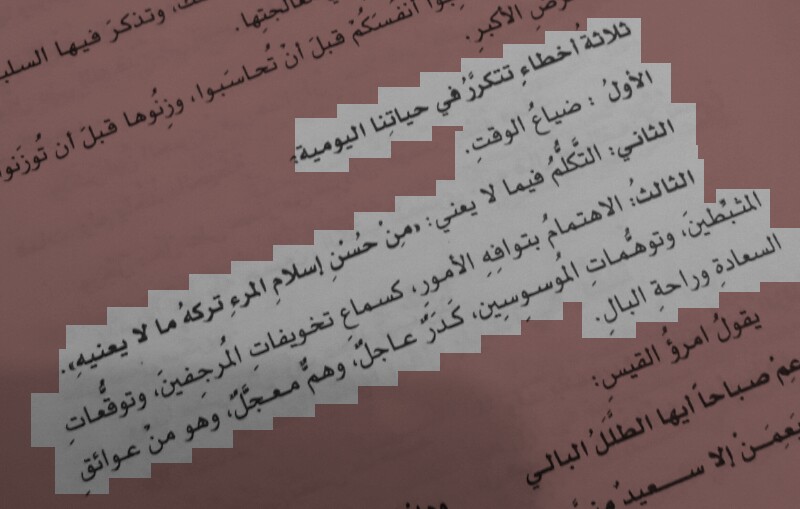 وتذكرَ فيها السلب
معالجتِها.
أنفسَكُمْ قبلَ أنْ تُحاسَبوا، وزِنُوها قبلَ أن تُوزَنو
الأكبرِ.
ثلاثةُ أخطاءٍ تتكرَّرُ في حياتِنا اليوميةِ:
الأولُ : ضياعُ الوقتِ.
الثاني: التَّكلُّمُ فيما لا يعني: «مِنْ حُسْنِ إسلامِ المرءِ تركهُ ما لا يعنيهِ».
الثالثُ: الاهتمامُ بتوافِهِ الأمورِ، كسماعِ تخويفاتِ المُرجِفينَ، وتوقُّعاتِ
المثبِّطينَ، وتوهُّماتِ المُوسوِسِين، كَدَرٌ عاجلٌ، وهمٌّ معجَّلٌ، وهو منْ عوائقِ
السعادةِ وراحةِ البالِ.
يقولُ امرؤُ القيسِ:
عِمْ صباحاً أيها الطَّلَلُ البالي
يَعِمَنْ إلا سعيدٌ